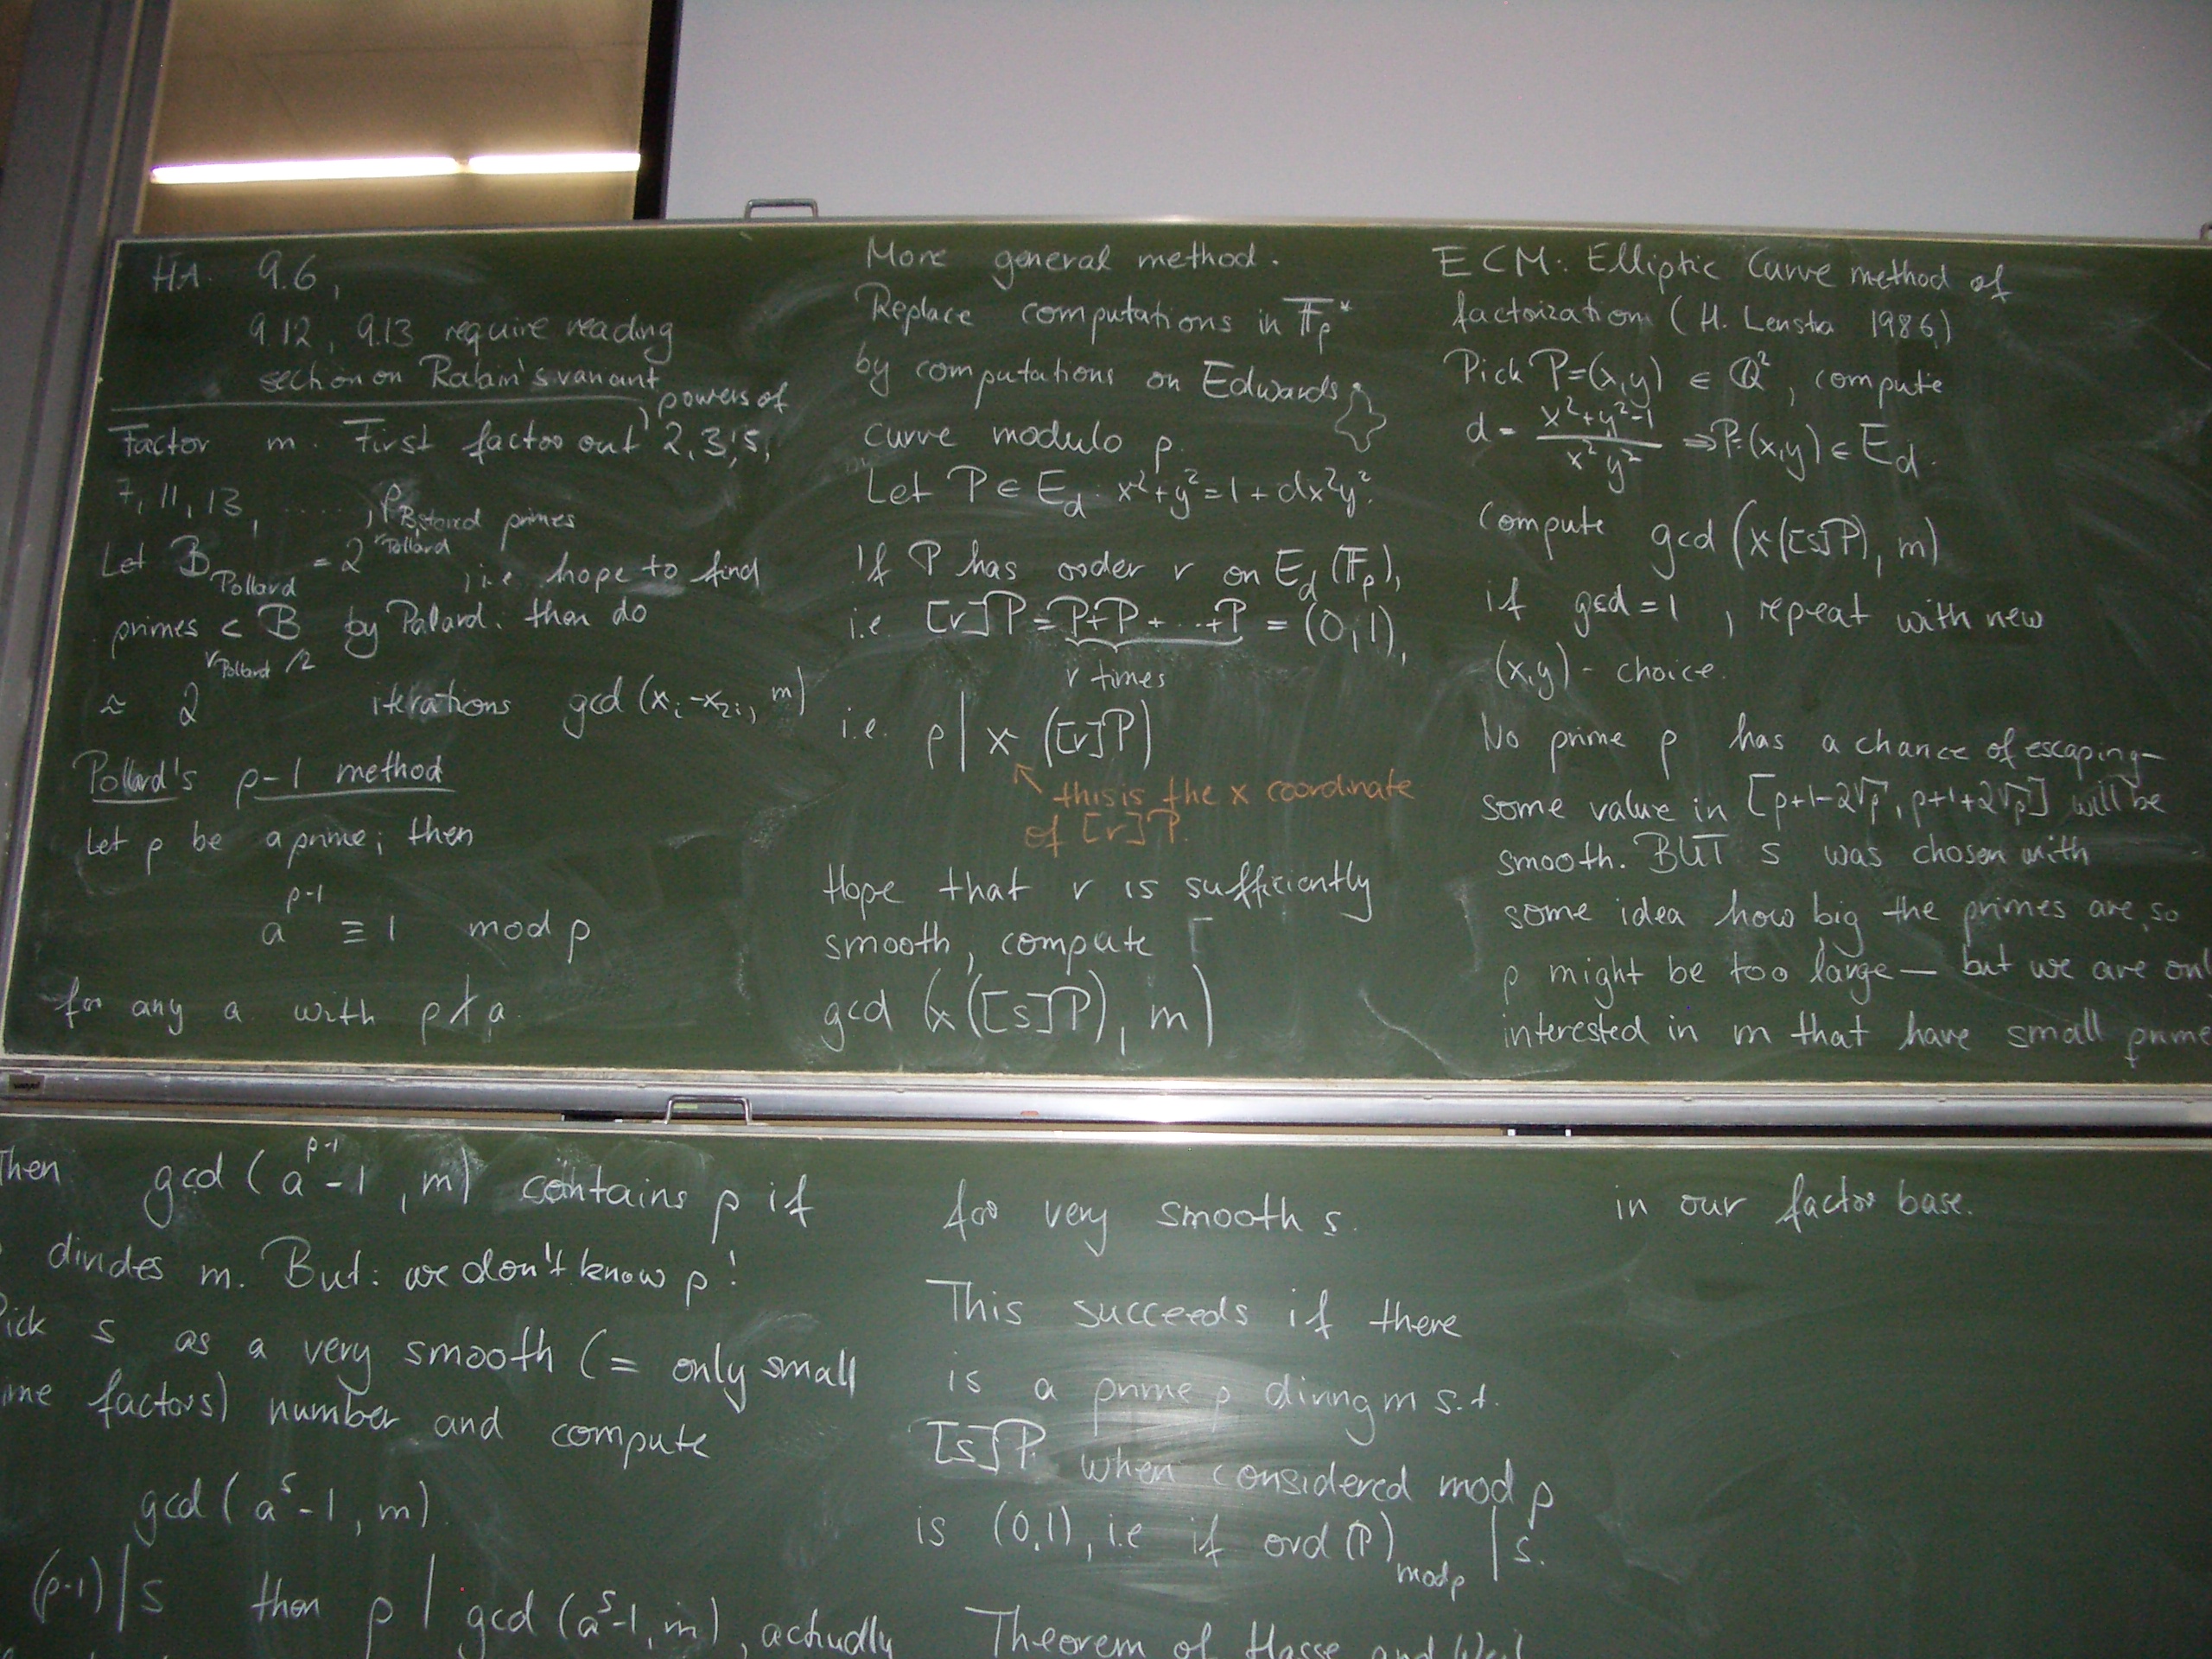 HA. 9.6,
9.12, 9.13 require reading
section on Rabin's variant
Factor m. First factor out powers of 2,3,5,
7, 11, 13, ......, p_B stored primes
Let B_Pollard = 2^(r_Pollard), i.e. hope to find
primes < B by Pollard. then do
≈ 2^(r_Pollard/2) iterations gcd (x_i-x_2i, m)
Pollard's p-1 method
Let p be a prime; then
a^(p-1) ≡ 1 mod p
for any a with p∤a
Then gcd (a^(p-1)-1, m) contains p if
divides m. But: we don't know p!
Pick s as a very smooth (= only small
ime factors) number and compute
gcd (a^s-1, m).
(p-1)|s then p | gcd (a^s-1, m), actually
More general method.
Replace computations in 𝔽_p*
by computations on Edwards
curve modulo p.
Let P∈E_d: x²+y²=1+dx²y².
If P has order r on E_d(𝔽_p),
i.e. [r]P = P+P+...+P = (0,1),
r times
i.e. p | x ([r]P)
this is the x coordinate
of [r]P.
Hope that r is sufficiently
smooth, compute
gcd (x([s]P), m)
for very smooth s.
This succeeds if there
is a prime p diving m s.t.
[s]P when considered mod p
is (0,1), i.e if ord(P)_mod p | s.
Theorem of Hasse and Weil
ECM: Elliptic Curve method of
factorization (H. Lenstra 1986)
Pick P=(x,y) ∈ ℚ², compute
d = (x²+y²-1)/(x²y²) ⇒ P=(x,y) ∈ E_d.
compute gcd (x([s]P), m)
if gcd = 1, repeat with new
(x,y) - choice.
No prime p has a chance of escaping—
some value in [p+1-2√p, p+1+2√p] will be
smooth. BUT s was chosen with
some idea how big the primes are, so
p might be too large — but we are onl
interested in m that have small prime
in our factor base.